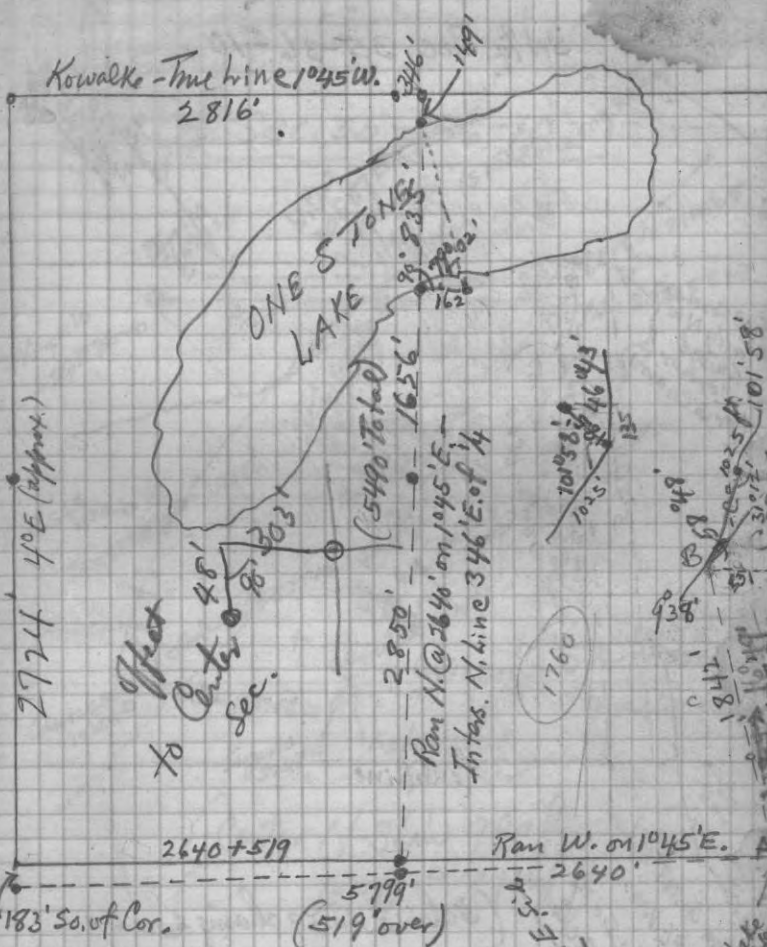 Kowalke - True Line 1°45'W.
2816'
346'
149'
ONE STONE
LAKE
835'
90°
162
1656'
(5490' Total)
2724' 4°E (approx.)
48'
90°
303'
Offset
to Center
Sec.
2850'
Ran N. @ 2640' on 1°45'E –
Inters. N. Line 346' E. of 1/4
101°58'
46°43'
135
1025'
1760
101°58'
1025 ft.
31°12'
68°48'
B
938'
1842'
C
2640 + 519
Ran W. on 1°45'E.
2640'
183' So. of Cor.
5799'
(519' over)